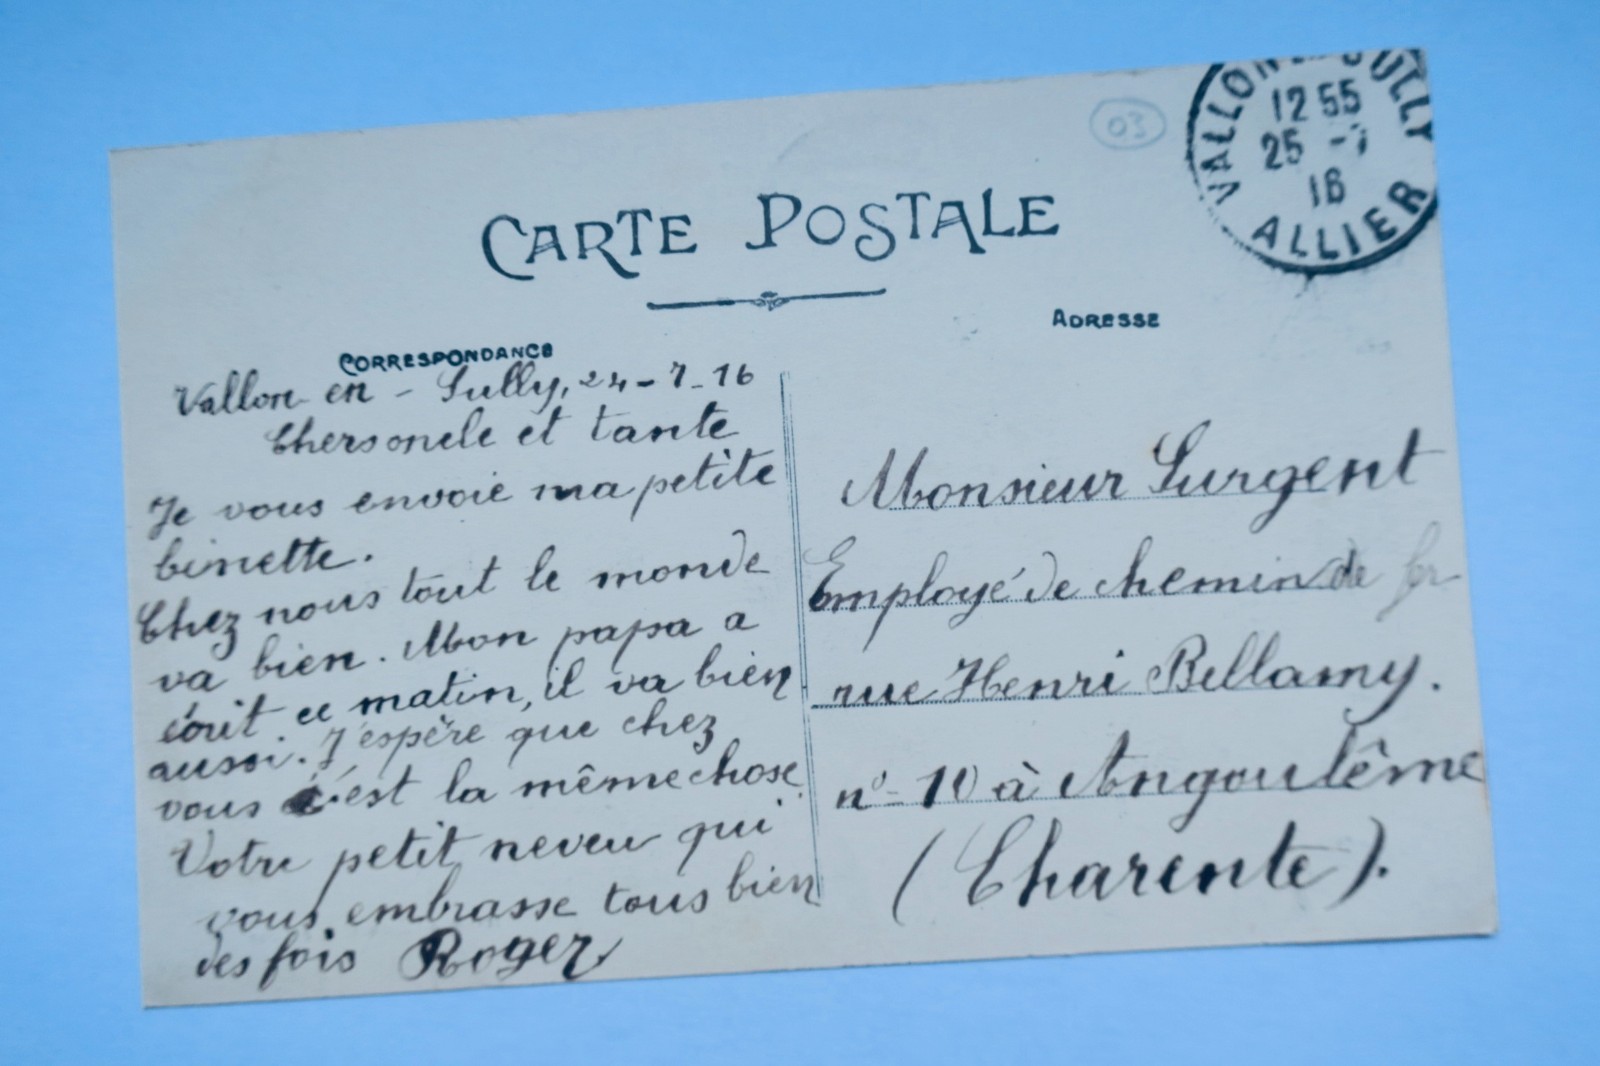 CARTE POSTALE
CORRESPONDANCE
Vallon-en-Sully, 24-7-16
Chers oncle et tante
Je vous envoie ma petite
binette.
Chez nous tout le monde
va bien. Mon papa a
écrit ce matin, il va bien
aussi. J'espère que chez
vous c'est la même chose.
Votre petit neveu qui
vous embrasse tous bien
des fois Roger
03
VALLON-EN-SULLY
12 55
25 -7
16
ALLIER
ADRESSE
Monsieur Surgent
Employé de chemin de fer
rue Henri Bellamy.
n° 10 à Angoulême
(Charente).